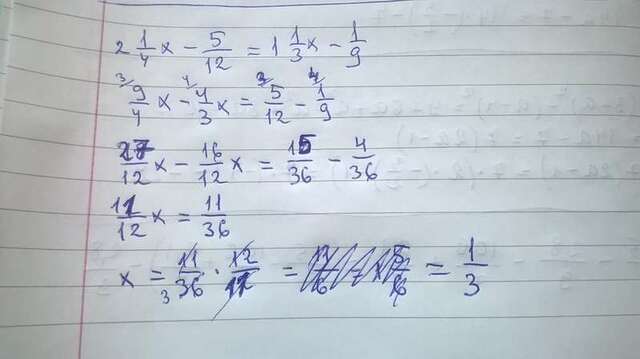 2 1/4 x - 5/12 = 1 1/3 x - 1/9
3/ 9/4 x - 4/ 4/3 x = 3/ 5/12 - 4/ 1/9
27/12 x - 16/12 x = 15/36 - 4/36
11/12 x = 11/36
x = 11/36 3 · 12/11 = = 1/3